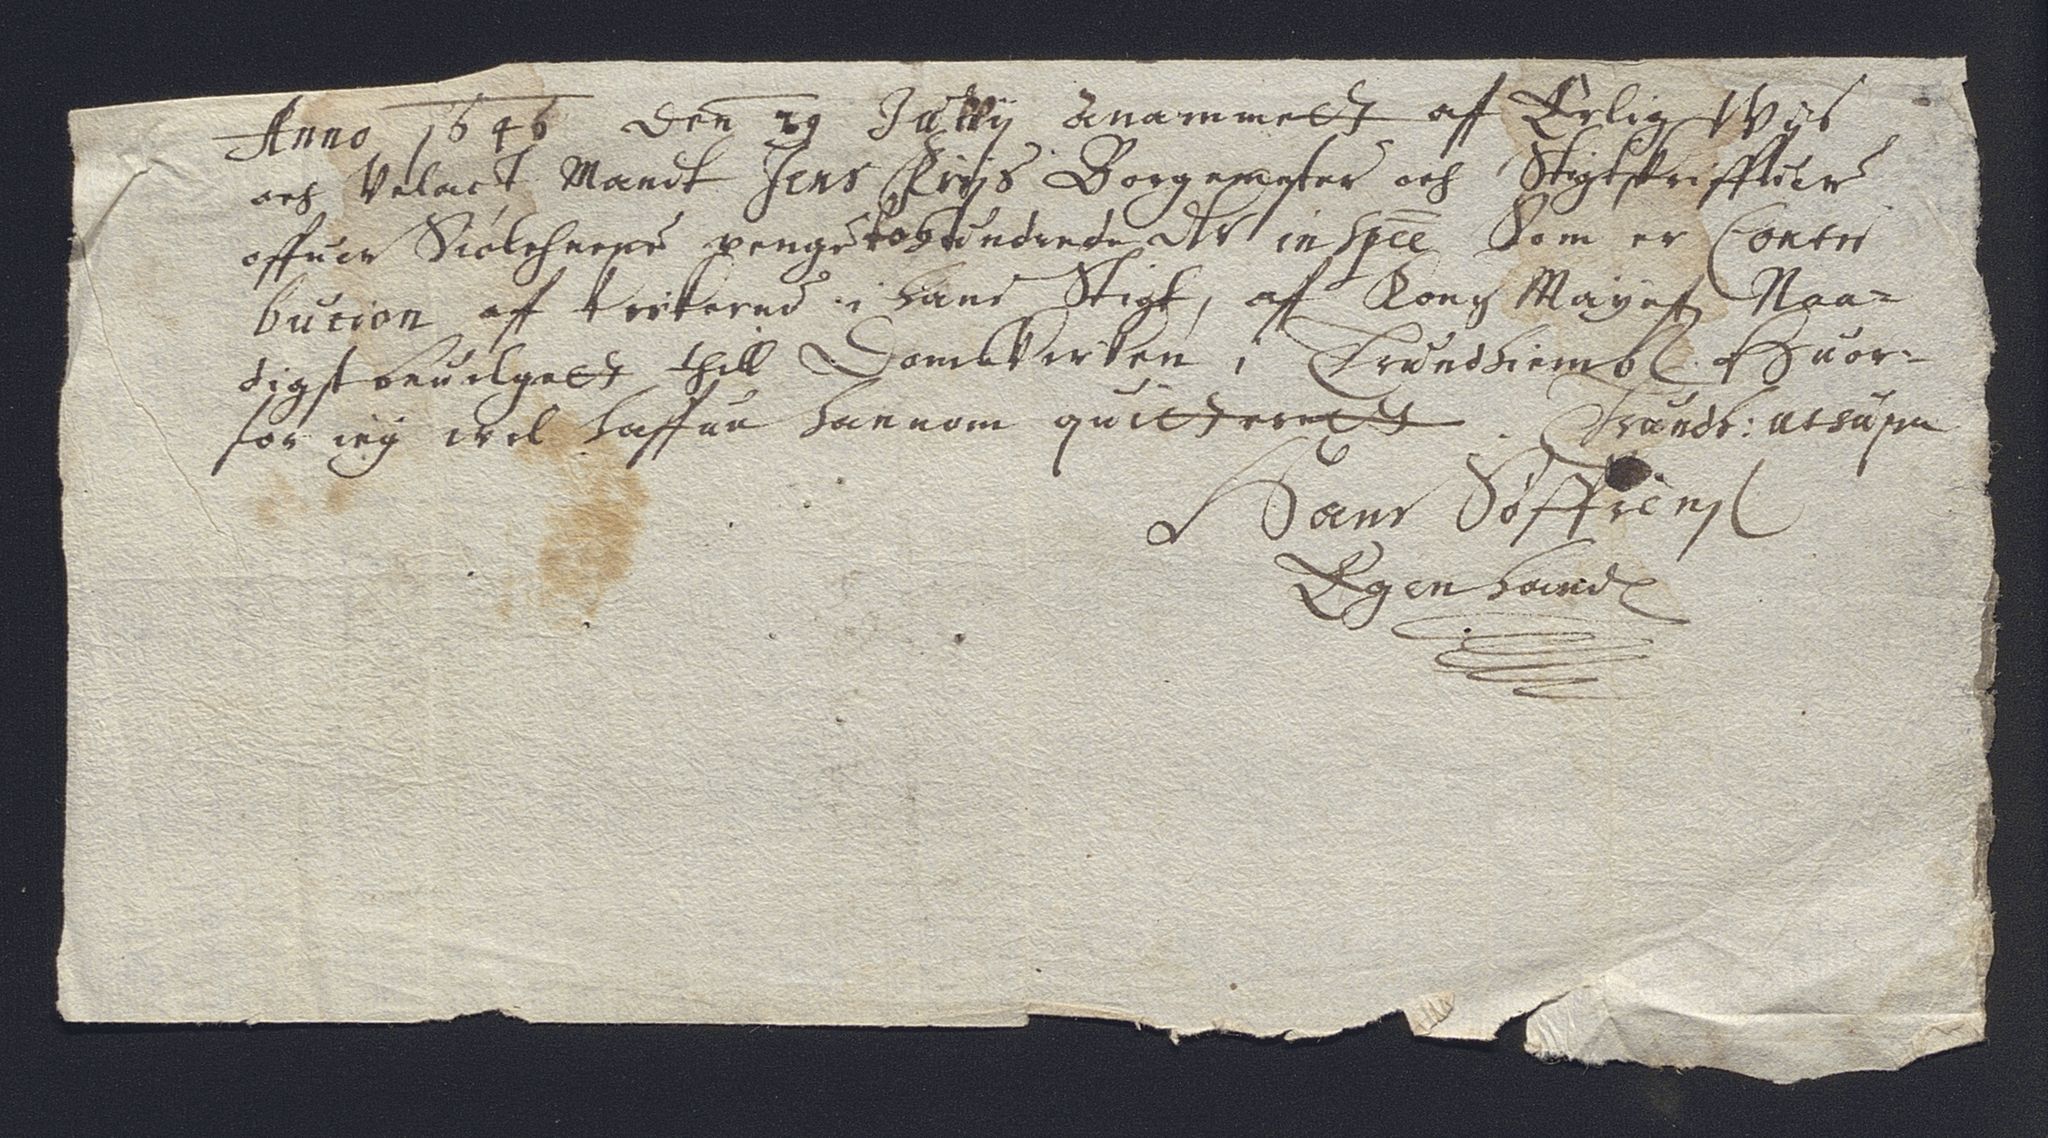 Anno 1646 den 29 Julij Anammett aff Erlig Wijs
och Velact Mandt Jens Krijs Borgemester och Stigtskriffuer
offuer penge tohundrede dlr in spec Som er Contri
bucion aff kirkerne i hans Stigt, aff Kong: Mayest Naa=
digst beuilgett thill Domkirken i Trundhiemb. Huor-
for ieg vil haffue hannom quitterett. Trundh: ut supra
Hans Söffrensen
Egen handt